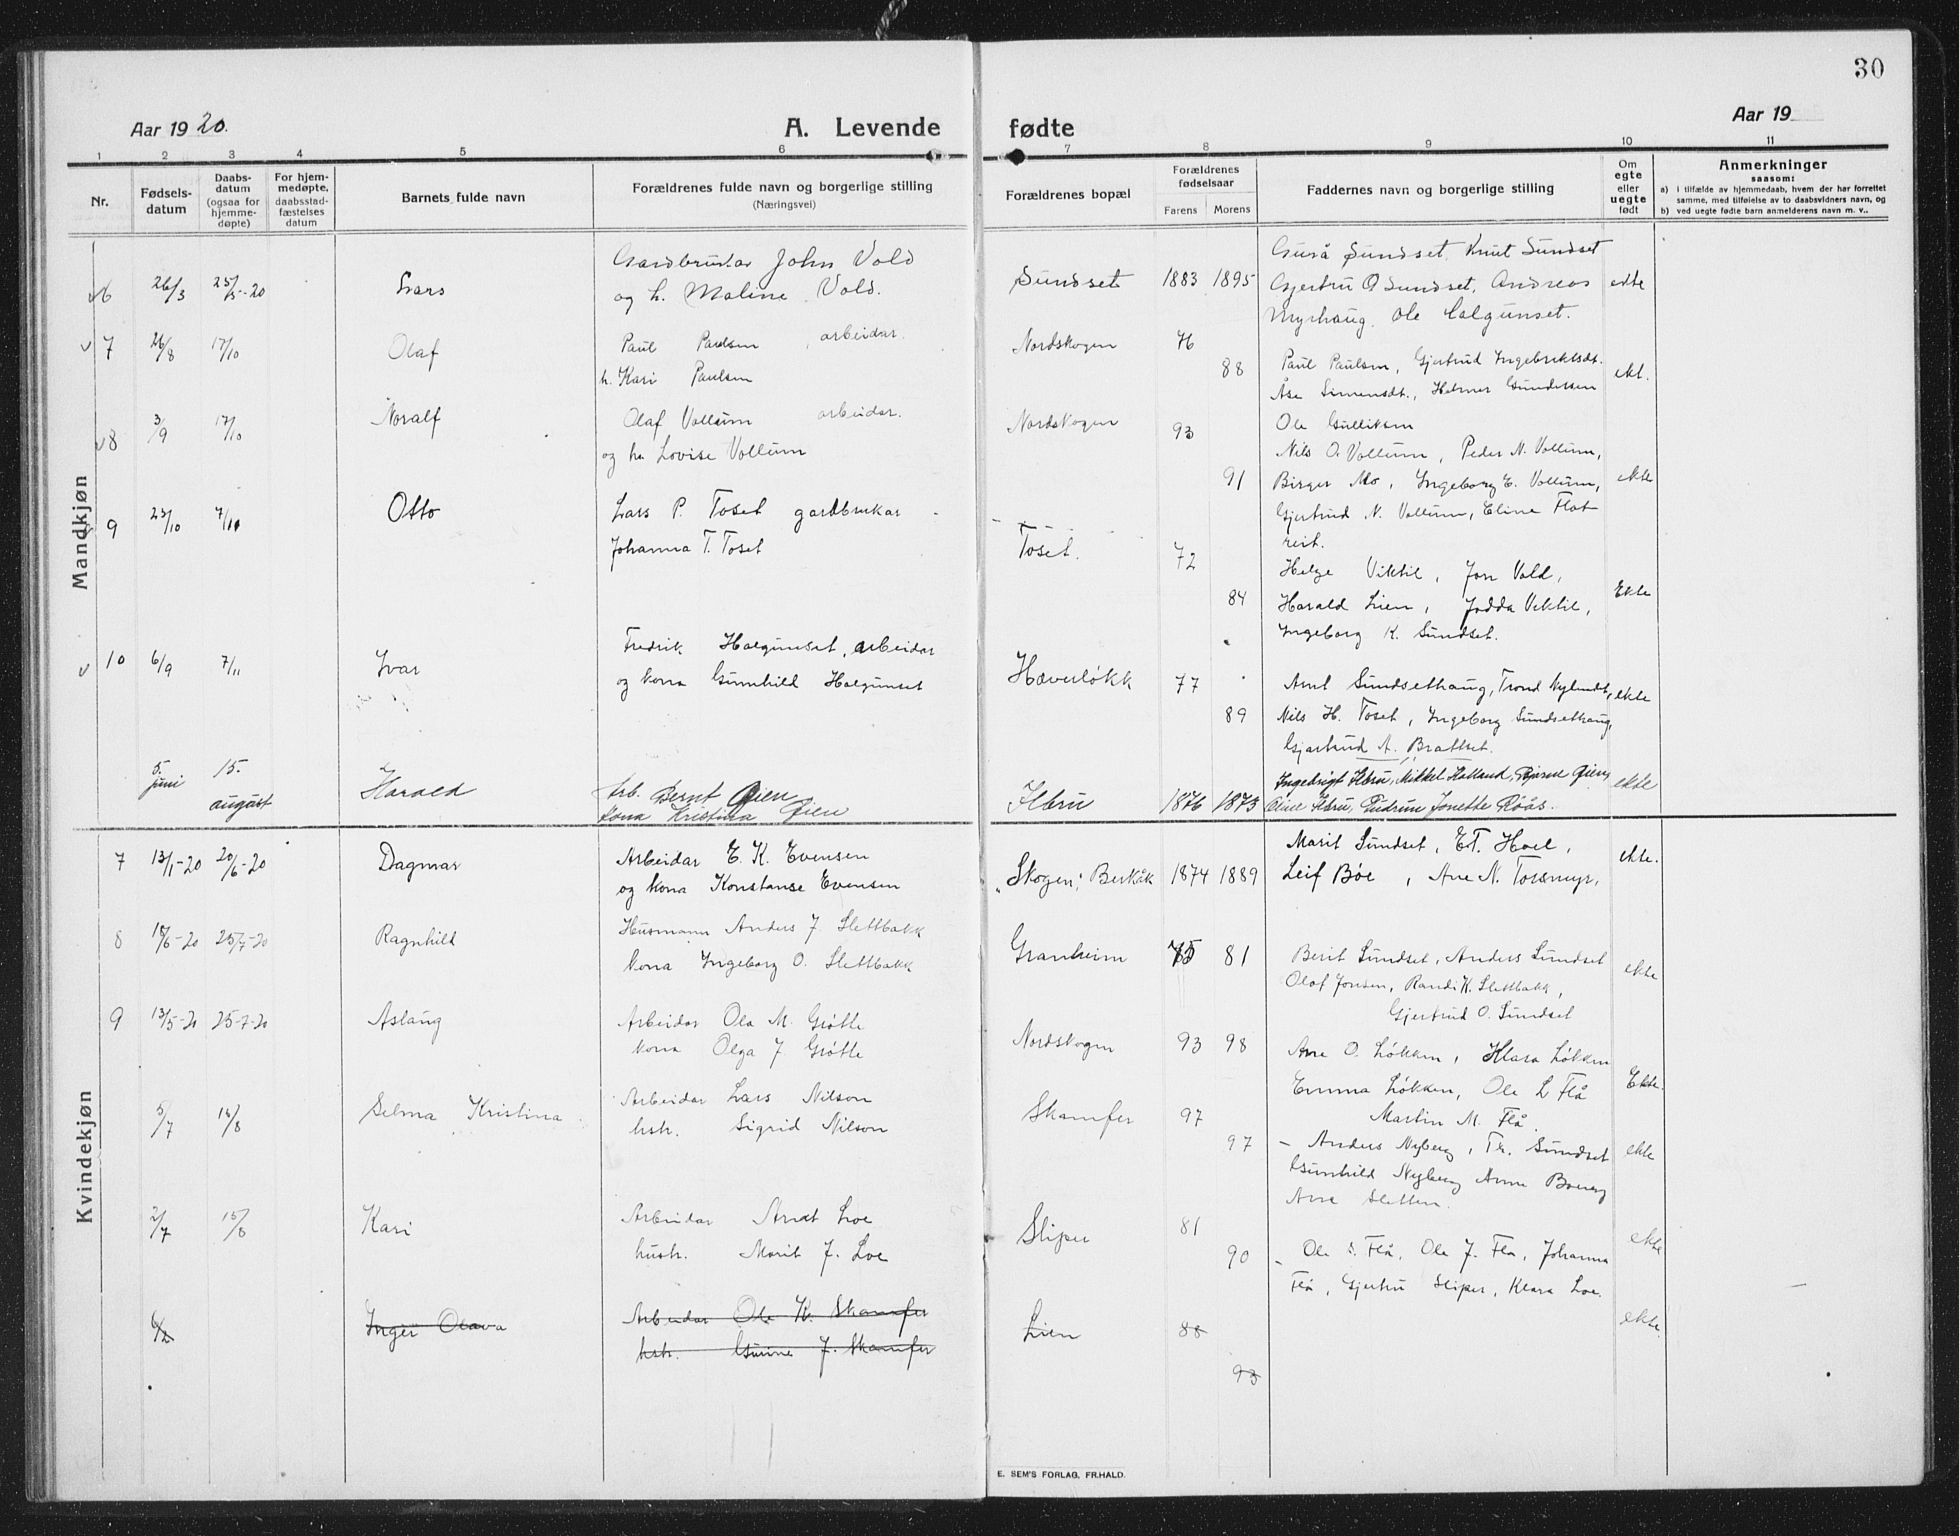 30
Aar 1920. A. Levende fødte Aar 19
1 2 3 4 5 6 7 8 9 10 11
Nr.
Fødsels-
datum
Daabs-
datum
(ogsaa for
hjemme-
døpte)
For hjem-
medøpte,
daabsstad-
fæstelses
datum
Barnets fulde navn
Forældrenes fulde navn og borgerlige stilling
(Næringsvei)
Forældrenes bopæl
Forældrenes
fødselsaar
Farens Morens
Faddernes navn og borgerlige stilling
Om
egte
eller
uegte
født
Anmerkninger
saasom:
a) i tilfælde av hjemmedaab, hvem der har forrettet
samme, med tilføielse av to daabsvidners navn, og
b) ved uegte fødte barn anmelderens navn m. v..
Mandkjøn
6 26/3 25/5-20 Lars
Gardbrukar John Vold
og h. Maline Vold.
Sundset 1883 1895
Guså Sundset, Knut Sundset
Gjertru O Sundset, Andreas
Myrhaug, Ole Halgunset.
ekte
v 7 26/8 17/10 Olaf
Paul Paulsen, arbeidar.
h. Kari Paulsen
Nordskogen 76
88
Paul Paulsen, Gjertrud Ingebriktsdt.
Åse Simensdt., Helmer Gundersen
ekt.
v8 3/9 17/10 Noralf
Olaf Vollum arbeidar.
og ha Lovise Vollum
Nordskogen 93
91
Ole Gulliksen
Nils O. Vollum, Peder N. Vollum,
Birger Mo, Ingeborg E. Vollum,
Gjertrud N. Vollum, Eline Flat
reit.
ekte
9 23/10 7/11 Otto
Lars P. Toset gardbrukar
Johanna T. Toset
Toset. 72
84
Helge Viktil, Jon Vold,
Harald Lien, Jodda Viktil,
Ingeborg K. Sundset.
Ekte
v 10 6/9 7/11 Ivar
Fredrik Halgunset, arbeidar
og kona Gunhild Halgunset
Hæverløkk 77
89
Arnt Sundsethaug, Trond Nylundet,
Nils H. Toset, Ingeborg Sundsethaug,
Gjartrud A. Brattset.
ekte
5. juni 15. august Harald
Arb. Bernt Øien
kona Kristina Øien
Ilbru 1876 1873
Ingebrigt Ilbru, Mikkel Halland, Bjarne Øien,
Oline Ilbru, Gudrun Jonette Röås.
ekte
Kvindekjøn
7 13/1-20 20/6-20 Dagmar
Arbeidar E. K. Evensen
og kona Konstanse Evensen
"Skogen", Berkåk 1874 1889
Marit Sundset, E.T. Hoel,
Leif Bøe, Ane N. Torsmyr,
ekte.
8 18/6-20 25/7-20 Ragnhild
Husmann Anders J. Slettbakk
kona Ingeborg O. Slettbakk
Granheim 75 81
Berit Sundset, Anders Sundset
Olaf Jonsen, Randi K. Slettbakk,
Gjertrud O. Sundset
ekte
9 13/5-20 25-7-20 Aslaug
Arbeidar Ola M. Grøtte
kona Olga J Grøtte
Nordskogen 93 98
Ane O. Løkken, Klara Løkken
Emma Løkken, Ole L Flå
Martin M. Flå.
Ekte.
5/7 15/8 Selma Kristina
Arbeidar Lars Nilson
hstr. Sigrid Nilson
Skamfer 97
97
Anders Nyberg, Tr. Sundset
Gunhild Nyberg Anne
Ane Sletten.
ekte
2/7 15/8 Kari
Arbeidar Arnt Loe
hustr. Marit J. Loe
Sliper 81
90
Ole S. Flå, Ole J. Flå, Johanna
Flå, Gjertru Sliper, Klara Loe.
ekte
6/2 Inger Olava
Arbeidar Ole K. Skamfer
hstr. Gurine J. Skamfer
Lien 88
93
ekte.
E. SEM'S FORLAG, FR.HALD.